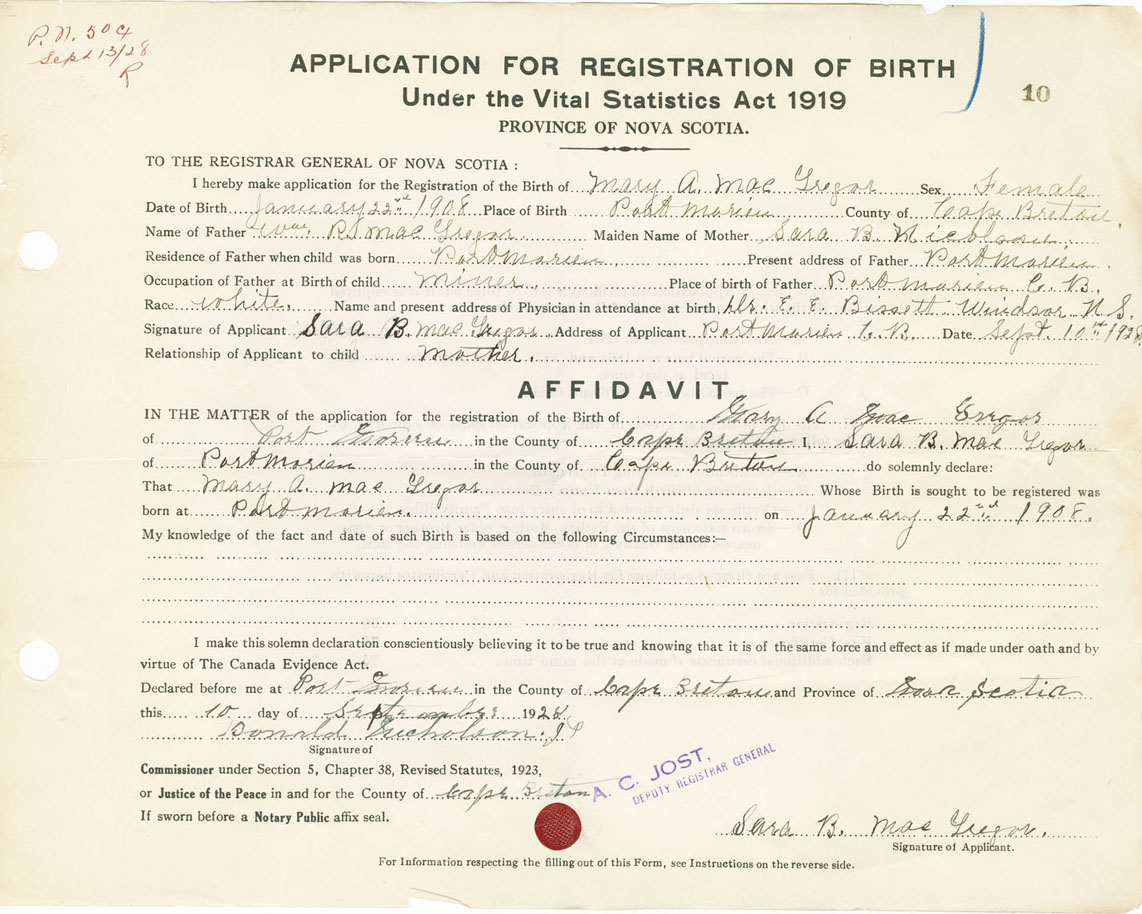 P. N. 504
Sept 13/28
R
APPLICATION FOR REGISTRATION OF BIRTH
Under the Vital Statistics Act 1919
10
PROVINCE OF NOVA SCOTIA.
TO THE REGISTRAR GENERAL OF NOVA SCOTIA :
I hereby make application for the Registration of the Birth of Mary A. Mac Gregor Sex Female
Date of Birth January 22nd 1908 Place of Birth Port Morien County of Cape Breton
Name of Father Wm R. Mac Gregor Maiden Name of Mother Sara B. Nicolson
Residence of Father when child was born Port Morien Present address of Father Port Morien
Occupation of Father at Birth of child miner Place of birth of Father Port Morien C. B.
Race white. Name and present address of Physician in attendance at birth Dr. E. E. Bissett Windsor N. S.
Signature of Applicant Sara B. Mac Gregor Address of Applicant Port Morien C. B. Date Sept. 10th 1928
Relationship of Applicant to child mother.
AFFIDAVIT
IN THE MATTER of the application for the registration of the Birth of Mary A Mac Gregor
of Port Morien in the County of Cape Breton I, Sara B. Mac Gregor
of Port Morien in the County of Cape Breton do solemnly declare:
That Mary A. Mac Gregor Whose Birth is sought to be registered was
born at Port Morien. on January 22nd 1908.
My knowledge of the fact and date of such Birth is based on the following Circumstances:—
I make this solemn declaration conscientiously believing it to be true and knowing that it is of the same force and effect as if made under oath and by
virtue of The Canada Evidence Act.
Declared before me at Port Morien in the County of Cape Breton and Province of Nova Scotia
this 10 day of September 1928
Donald Nicholson J P
Signature of
Commissioner under Section 5, Chapter 38, Revised Statutes, 1923,
or Justice of the Peace in and for the County of Cape Breton
A. C. JOST,
DEPUTY REGISTRAR GENERAL
If sworn before a Notary Public affix seal.
Sara B. Mac Gregor.
Signature of Applicant.
For Information respecting the filling out of this Form, see Instructions on the reverse side.